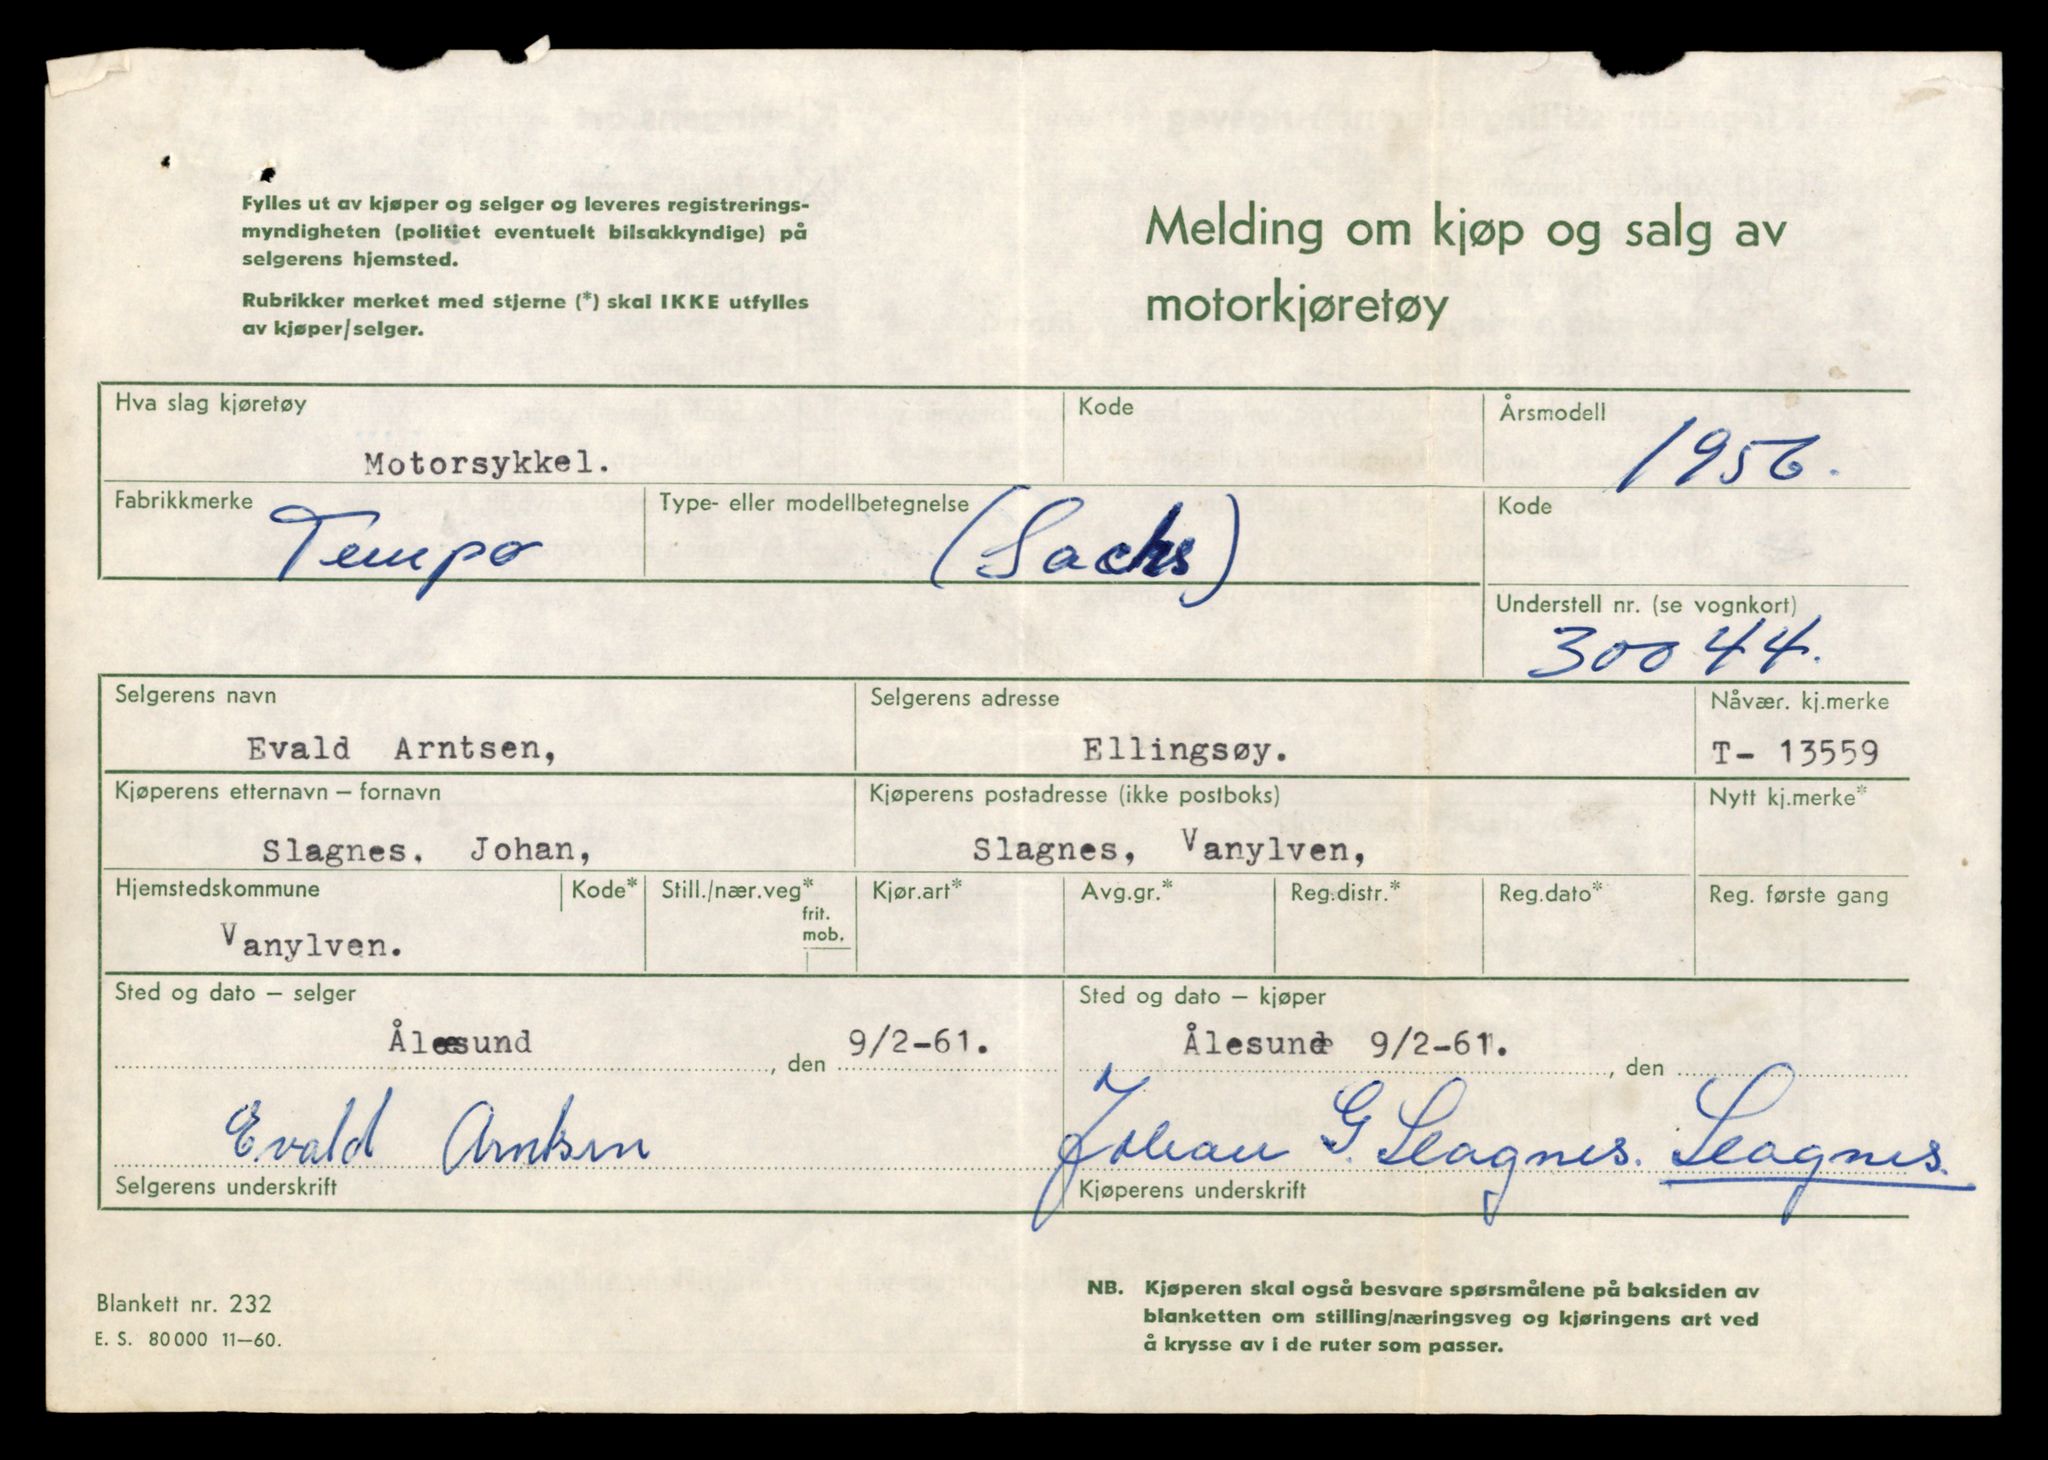 Fylles ut av kjøper og selger og leveres registrerings-
myndigheten (politiet eventuelt bilsakkyndige) på
selgerens hjemsted.
Rubrikker merket med stjerne (*) skal IKKE utfylles
av kjøper/selger.
Melding om kjøp og salg av
motorkjøretøy
Hva slag kjøretøy
Kode
Årsmodell
Motorsykkel.
1956.
Fabrikkmerke
Type- eller modellbetegnelse
Kode
Tempo
(Sachs)
Understell nr. (se vognkort)
30044.
Selgerens navn
Selgerens adresse
Nåvær. kj.merke
Evald Arntsen,
Ellingsøy.
T- 13559
Kjøperens etternavn – fornavn
Kjøperens postadresse (ikke postboks)
Nytt kj.merke*
Slagnes, Johan,
Slagnes, Vanylven,
Hjemstedskommune
Kode*
Still./nær.veg*
frit.
mob.
Kjør.art*
Avg.gr.*
Reg.distr.*
Reg.dato*
Reg. første gang
Vanylven.
Sted og dato – selger
Sted og dato – kjøper
Ålesund , den 9/2-61.
Ålesund 9/2-61. , den
Evald Arntsen
Johan G. Slagnes. Slagnes.
Selgerens underskrift
Kjøperens underskrift
Blankett nr. 232
E. S. 80 000 11–60.
NB. Kjøperen skal også besvare spørsmålene på baksiden av
blanketten om stilling/næringsveg og kjøringens art ved
å krysse av i de ruter som passer.